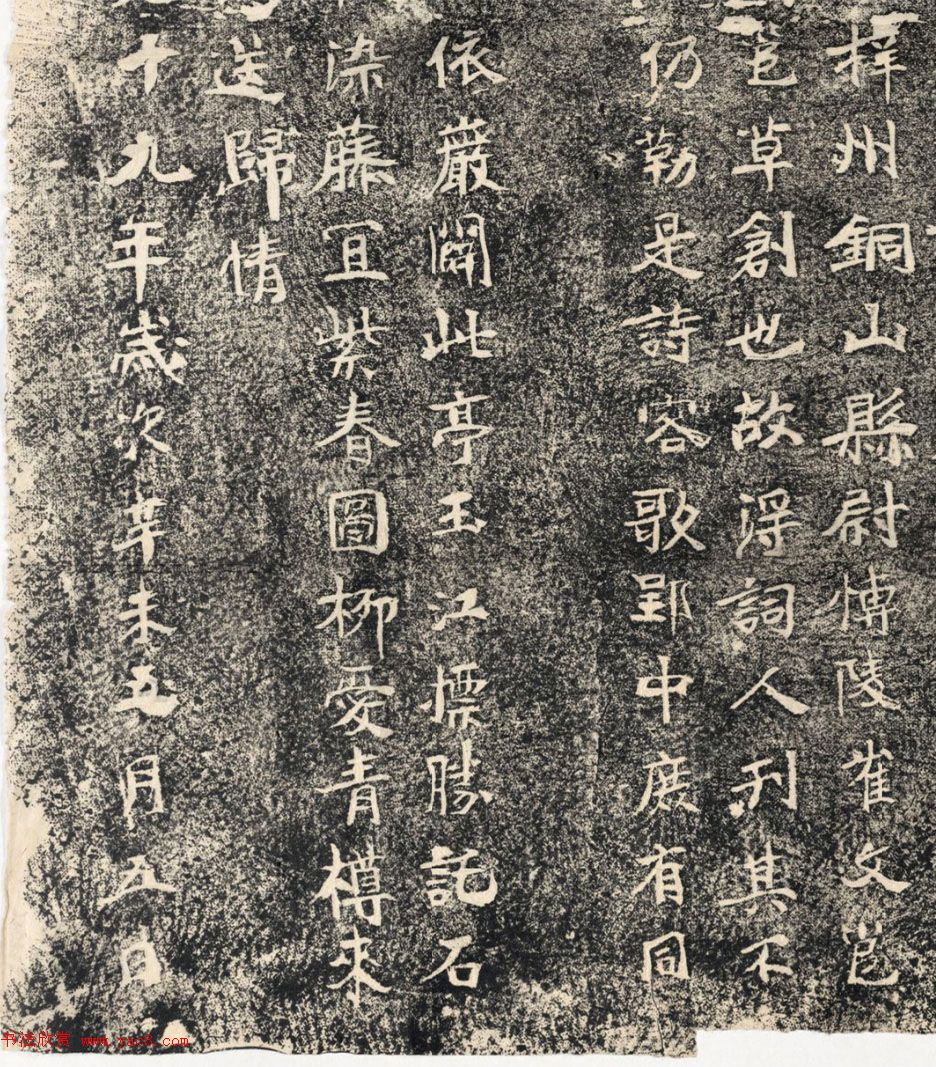 梓州銅山縣尉博陵崔文邕
邕草創也故得詞人刋其不
仍勒是詩容歌郢中庻有同
依巖開此亭玉江標勝託石
染藤宜紫春圖柳愛青樽來
送歸情
十九年歲次辛未五月五日
书法欣赏 www.yac8.com